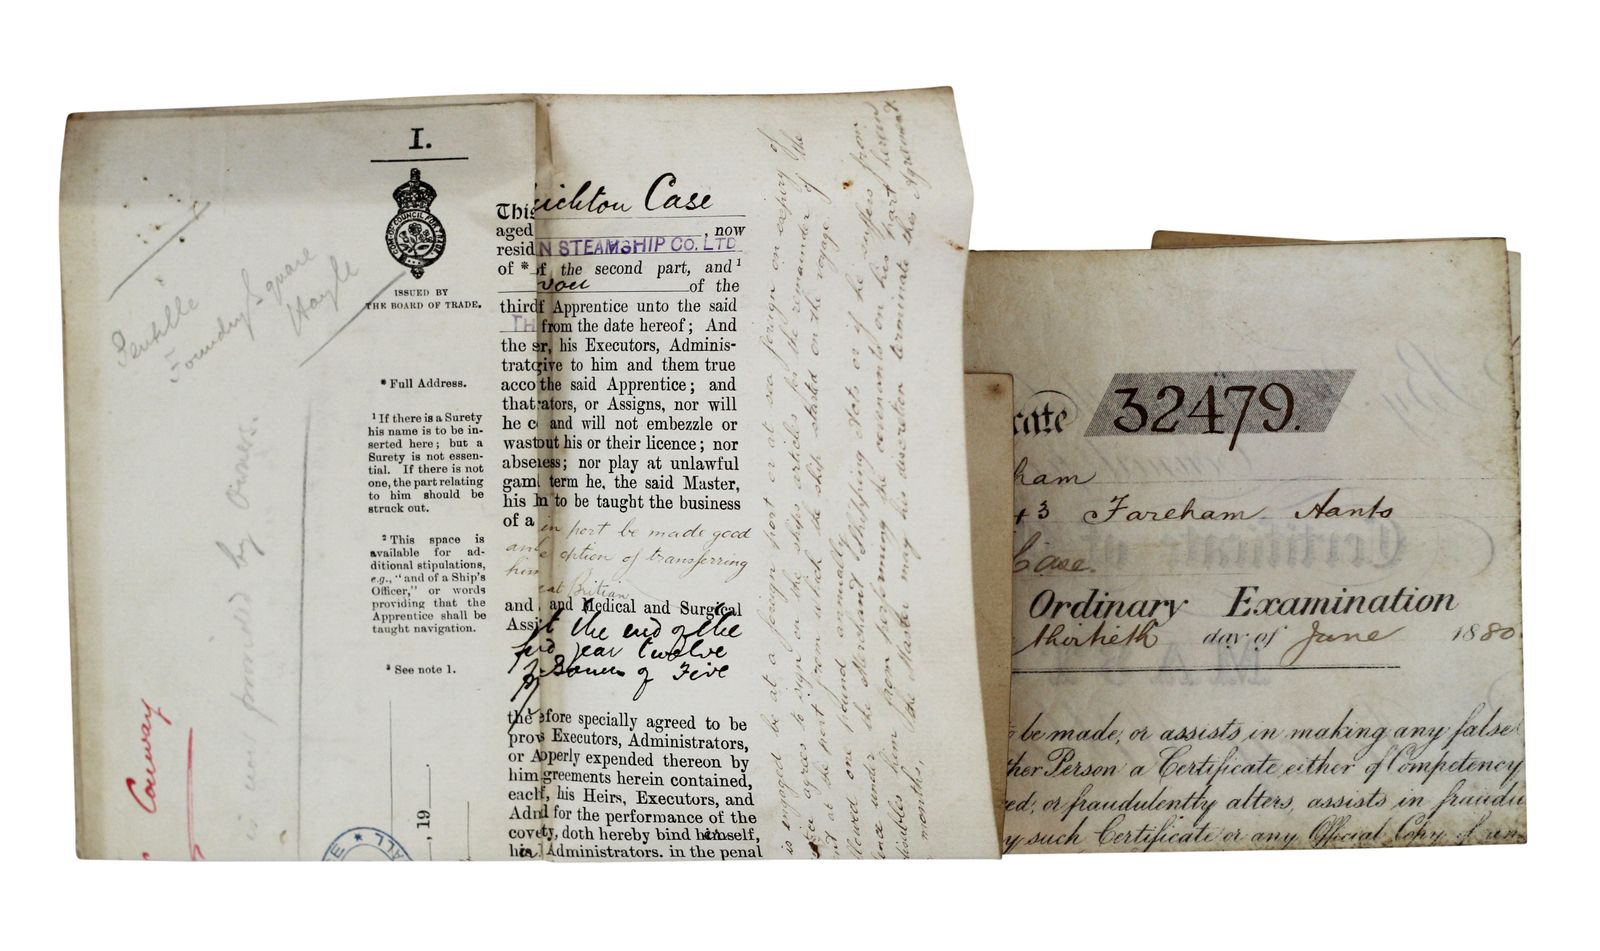 I.
ISSUED BY
THE BOARD OF TRADE.
* Full Address.
¹ If there is a Surety
his name is to be in-
serted here; but a
Surety is not essen-
tial. If there is not
one, the part relating
to him should be
struck out.
² This space is
available for ad-
ditional stipulations,
e.g., "and of a Ship's
Officer," or words
providing that the
Apprentice shall be
taught navigation.
³ See note 1.
, 19
Foundry Square
Hayle
is not provided by Owners.
Conway
This
Case
aged , now
resid N STEAMSHIP CO. LTD
of * of the second part, and ¹
of the
third Apprentice unto the said
TH from the date hereof; And
the er, his Executors, Adminis-
trato give to him and them true
acco the said Apprentice; and
that ators, or Assigns, nor will
he c and will not embezzle or
wast out his or their licence; nor
abse ess; nor play at unlawful
gam term he, the said Master,
his to be taught the business
of a
in port be made good
and option of transferring
him
eat Britian
and and Medical and Surgical
Assi
the end of the
year twelve
of Five
the efore specially agreed to be
prov Executors, Administrators,
or A operly expended thereon by
him greements herein contained,
each , his Heirs, Executors, and
Adm for the performance of the
cove ty, doth hereby bind himself,
his Administrators, in the penal
is engaged be at a foreign port or at sea foreign on expiry of
agrees to sign on the ships articles for the remainder of the
at the port from which the ship started on the voyage of
allowed one pound annually
under the Merchant Shipping Acts or if he suffers from
him from performing the covenants on his part herein
months, the Master may at his discretion terminate this Agreement.
cate 32479.
ham
43 Fareham Hants
Case.
Ordinary Examination
thirtieth day of June 1880
be made, or assists in making any false
ther Person a Certificate either of Competency
ed, or fraudulently alters, assists in fraudu
y such Certificate or any Official Copy of